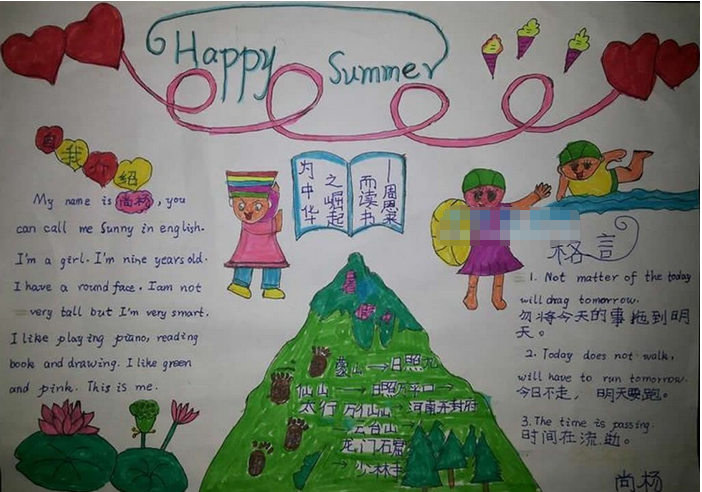 Happy Summer
自我介绍
My name is 尚杨, you
can call me Sunny in english.
I'm a girl. I'm nine years old.
I have a round face. I am not
very tall but I'm very smart.
I like playing piano, reading
book and drawing. I like green
and pink. This is me.
为中华
之崛起
而读书
—周恩来
蒙山→日照
仙山→日照
太行
河南开封府
云台山
龙门石窟
→少林寺
格言
1. Not matter of the today
will drag tomorrow.
勿将今天的事拖到明
天。
2. Today does not walk,
will have to run tomorrow.
今日不走，明天要跑。
3. The time is passing.
时间在流逝。
尚杨